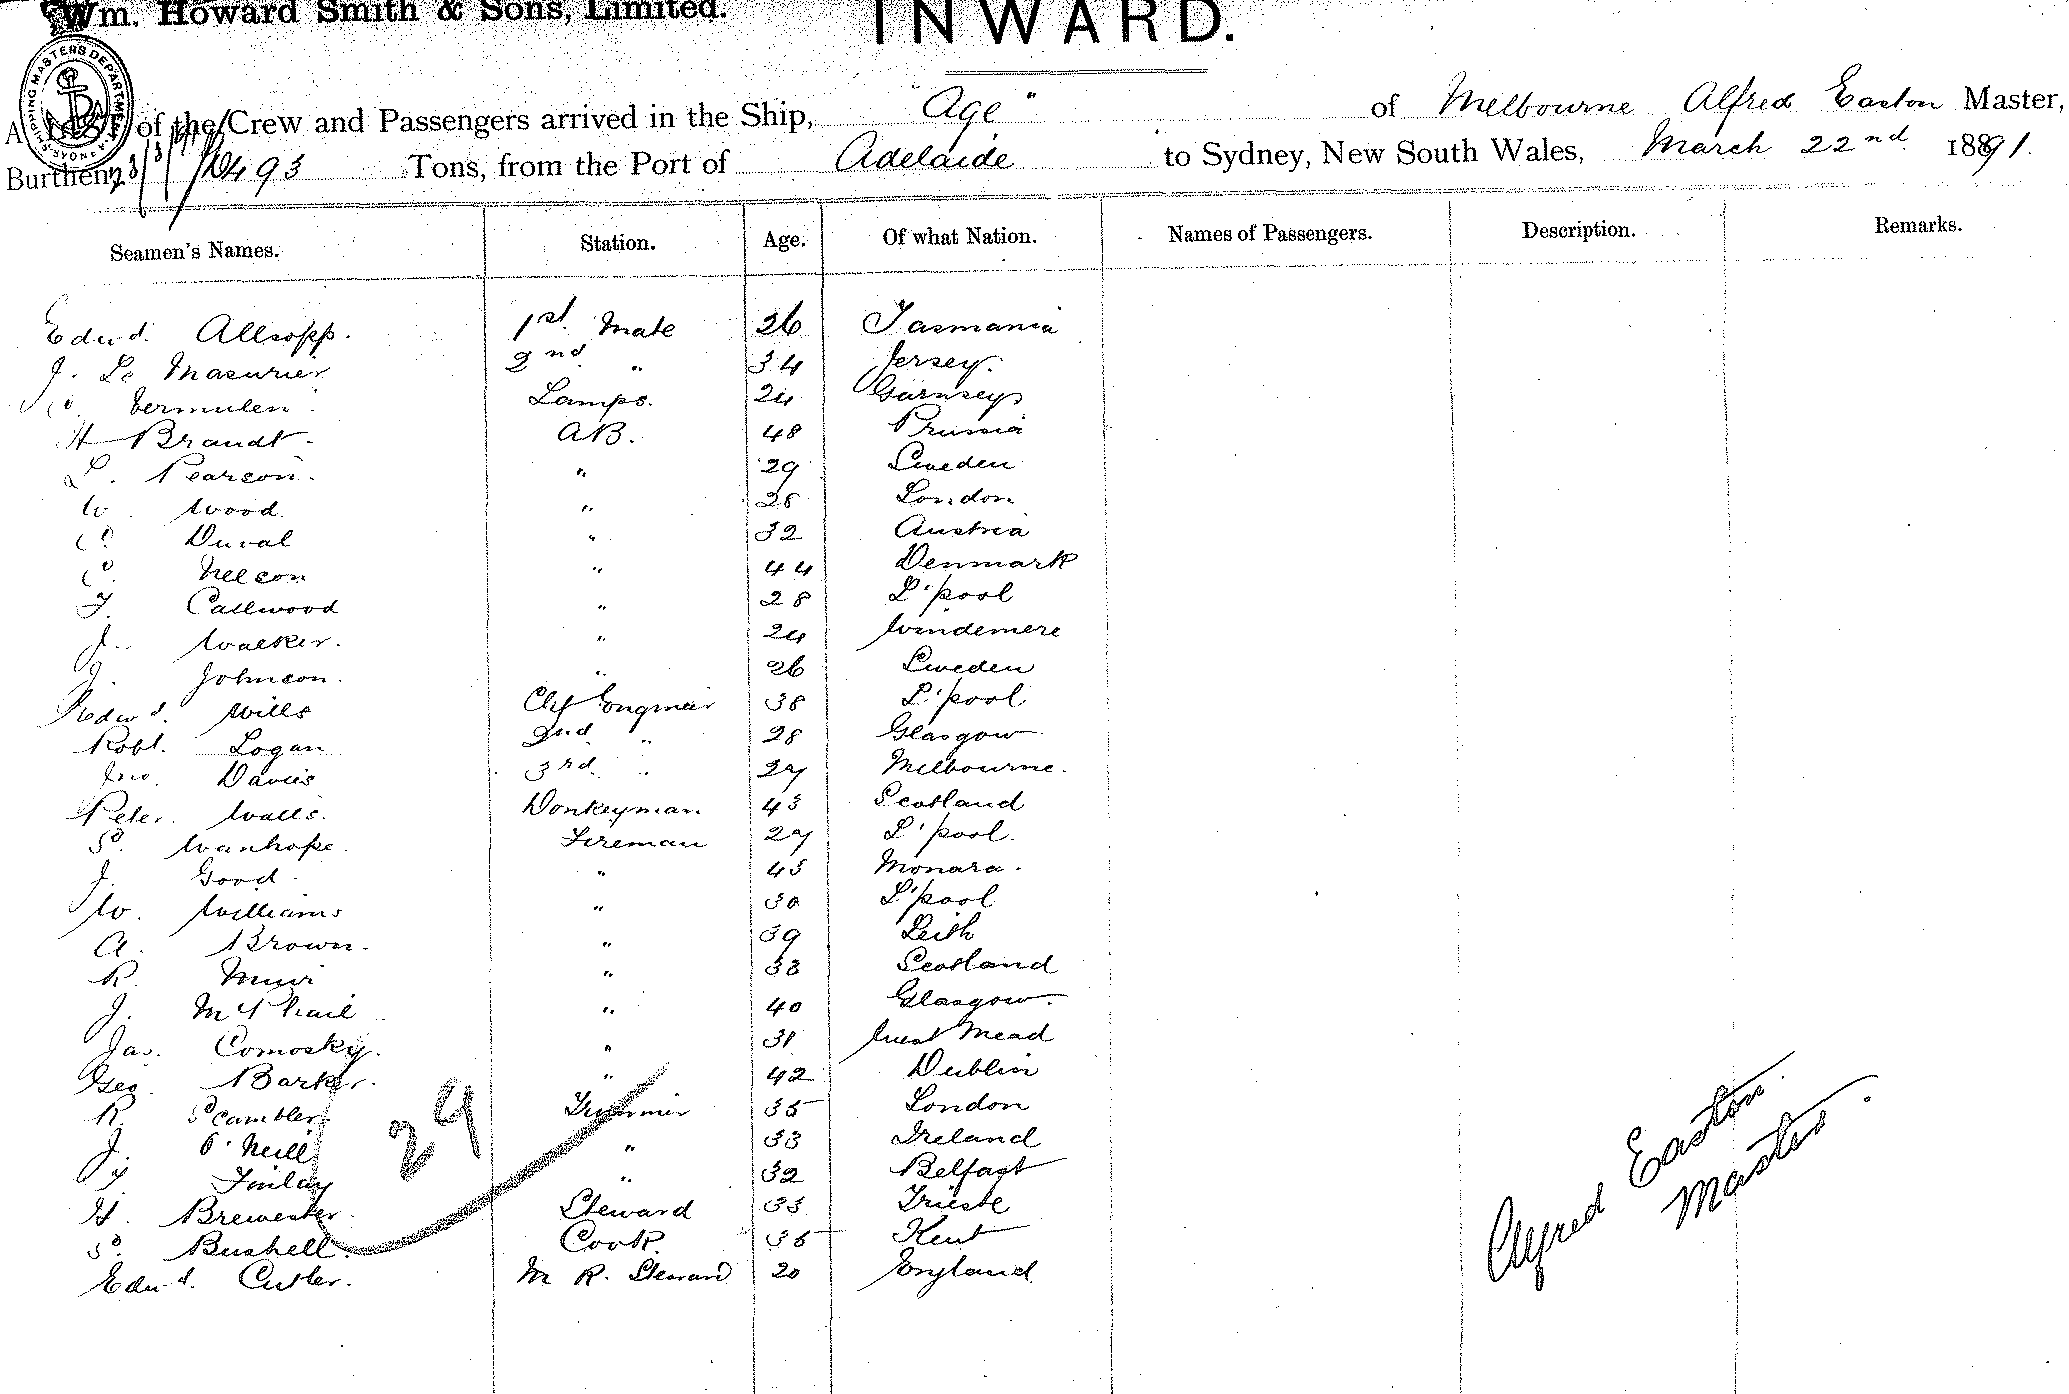 Wm. Howard Smith & Sons, Limited.
INWARD.
SHIPPING MASTERS DEPARTMENT SYDNEY
of the Crew and Passengers arrived in the Ship, "Age" of Melbourne Alfred Easton Master,
Burthen, Tons, from the Port of Adelaide to Sydney, New South Wales, March 22nd 1891.
Seamen's Names. Station. Age. Of what Nation. Names of Passengers. Description. Remarks.
Edwd. Allsopp. 1st. Mate 26 Tasmania
J. Le Masurier 2nd " 34 Jersey.
Vermulen Lamps. 24 Gurnsey
H Brandt AB. 48 Prussia
L. Pearson. " 29 Sweden
W. Wood " 28 London
C. Duval " 32 Austria
C. Nelson " 44 Denmark
F. Callwood " 28 L'pool
J. Walker. " 24 Windemere
J. Johnson. " 26 Sweden
Wills Chf Engineer 38 L'pool
Robt. Logan 2nd " 28 Glasgow
Jno. Davies 3rd " 27 Melbourne.
Peter Walls. Donkeyman 43 Scotland
S. Wanhope. Fireman 27 L'pool.
J. Good " 43 Monara.
W. Williams " 30 L'pool
A. Brown. " 39 Leith
R. Muir " 38 Scotland
J. McPhail " 40 Glasgow.
Jas. Comosky. " 31 West Mead
Geo. Barker. " 42 Dublin
R. Scambler Trimmer 35 London
J. O'Neill " 33 Ireland
Finlay " 32 Belfast
H. Brewester Steward 33 Trieste
S. Bushell. Cook. 35 Kent
Edwd. Cutler. M R. Steward 20 England
29
Alfred Easton
Master.